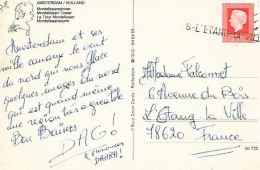 AMSTERDAM / HOLLAND
Montelbaanstoren
Montelbaan Tower
La Tour Montelbaan
Montelbaansturm
8-L'ETANG-LA-VILLE
Amsterdam et ses
mille canaux, le vent
du nord qui nous glace
quelques images du nord
qui est quand même une
région très agréable
Bon Baisers
DAG!
à prononcer
DAARH!
Madame Falconnet
6 Avenue du Bois
L'Etang la Ville
78620
France